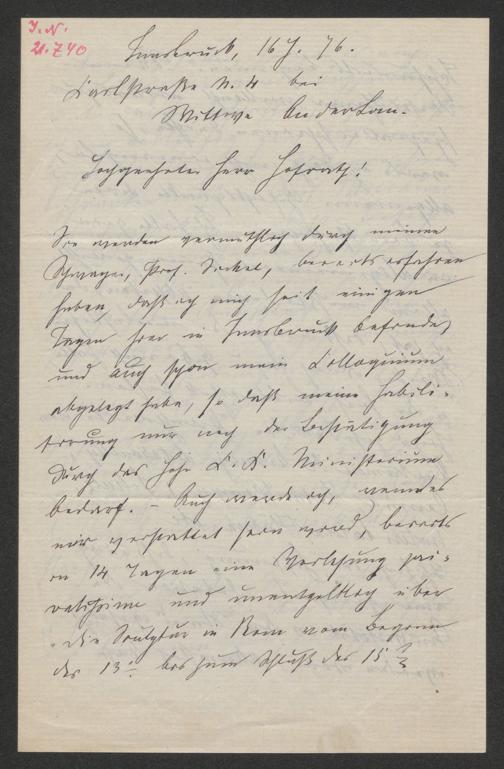 I. N.
21.740
Innsbruck, 16 J. 76.
Carlstraße N. 4 bei
Wittwe An der Lan.
Hochgeehrter Herr Hofrath!
Sie werden vermuthlich durch meinen
Schwager, Prof. bereits erfahren
haben, daß ich mich seit einigen
Tagen hier in Innsbruck befinde,
und auch schon mein Colloquium
abgelegt habe, so daß meine Habili-
tirung nur noch der Bestätigung
durch das hohe K. K. Ministerium
bedarf. – Auch werde ich, wenn es
mir verstattet sein wird, bereits
in 14 Tagen eine Vorlesung pri-
vatissime und unentgeltlich über
„die Sculptur in Rom vom Beginn
des 13. bis zum Schluß des 15.